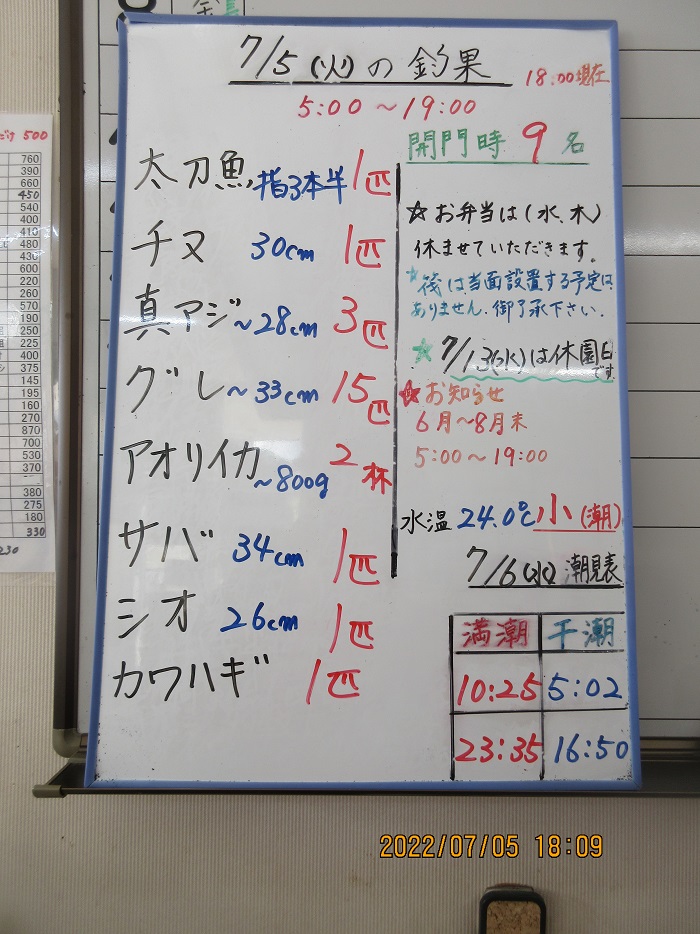 7/5(火)の釣果
18:00現在
5:00～19:00
太刀魚 指3本半 1匹
チヌ 30cm 1匹
真アジ ～28cm 3匹
グレ ～33cm 15匹
アオリイカ ～800g 2杯
サバ 34cm 1匹
シオ 26cm 1匹
カワハギ 1匹
開門時 9名
☆お弁当は(水、木)
休ませていただきます。
★筏は当面設置する予定は、
ありません。御了承下さい。
★7/13(水)は休園日です
★お知らせ
6月～8月末
5:00～19:00
水温 24.0℃ 小(潮)
7/6(水)潮見表
満潮 干潮
10:25 5:02
23:35 16:50
500
760
390
660
450
540
400
410
480
430
600
220
260
570
190
250
225
400
375
145
195
160
270
870
700
530
370
380
275
180
330
230
2022/07/05 18:09